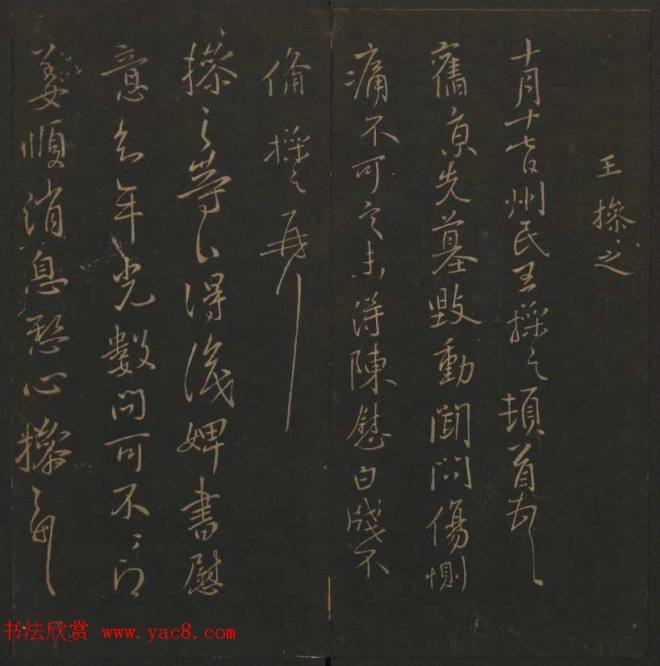 王操之
十月十七日州民王操之頓首
舊京先墓毀動聞問傷惻
痛不可言未得陳慰白牋不
備操之再
操之等以得識婢書慰
意年光數問可不
姜順消息愁心操之
书法欣赏 www.yac8.com